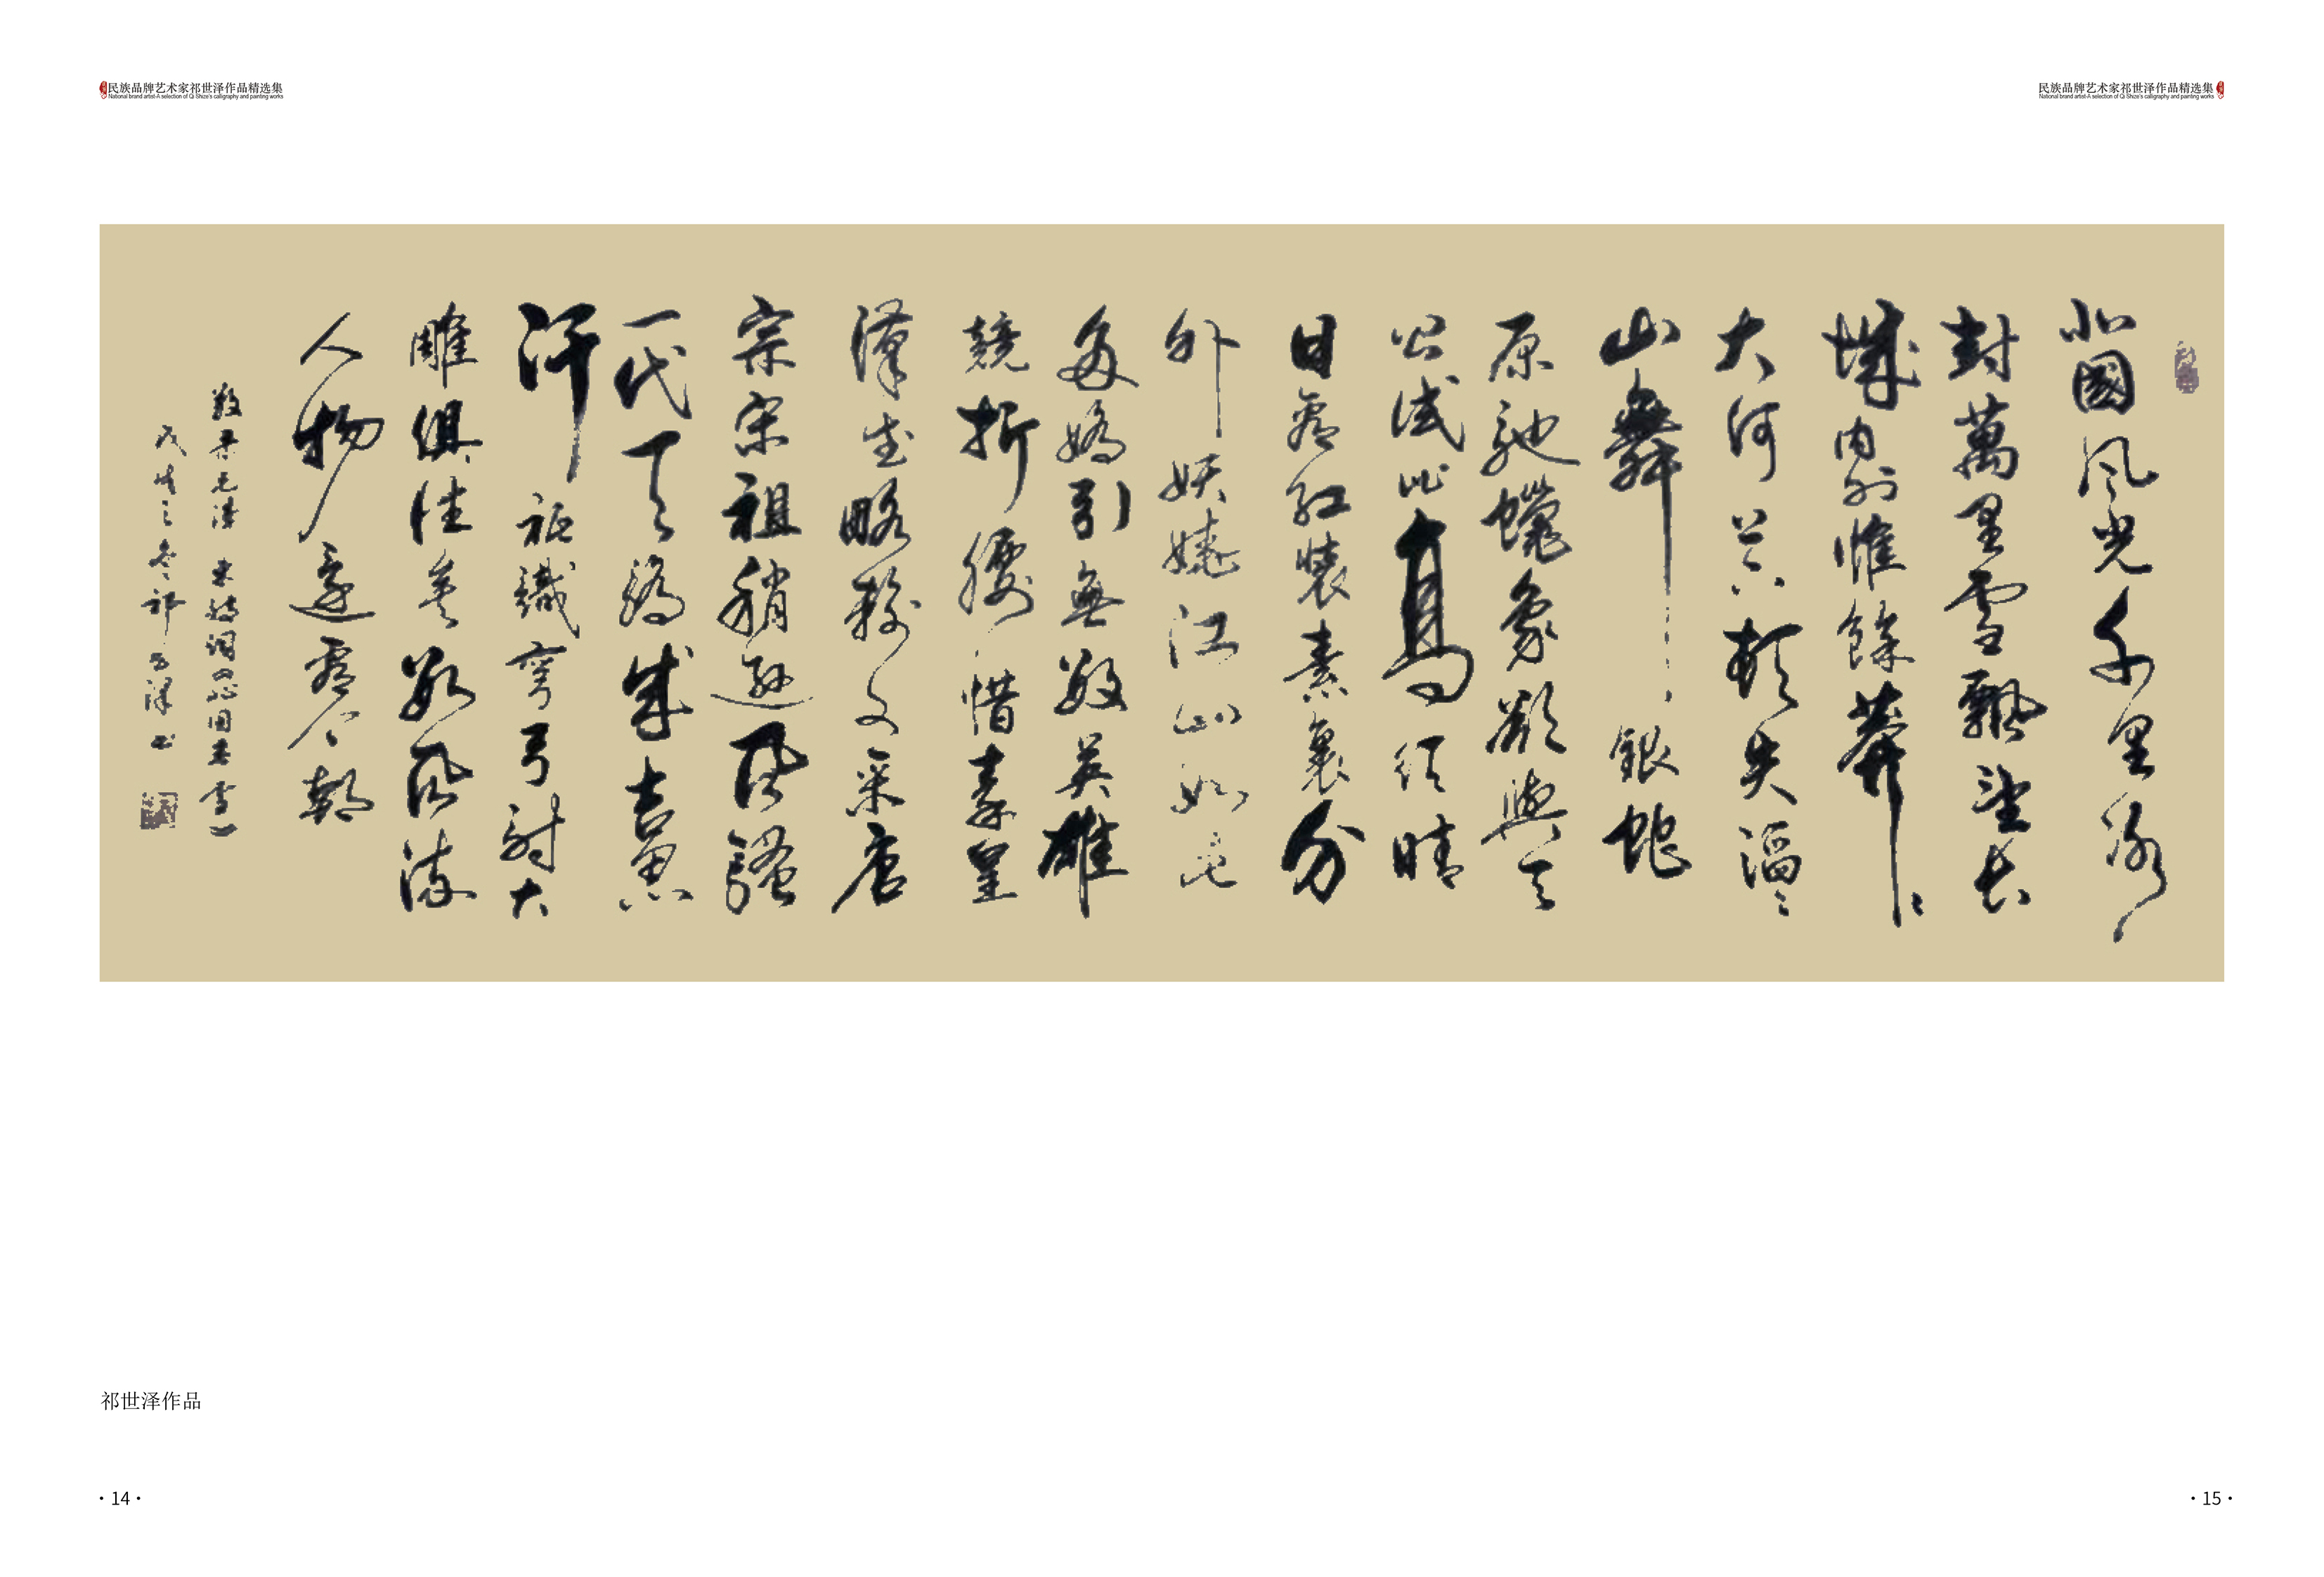 民族品牌艺术家祁世泽作品精选集
National brand artist-A selection of Qi Shize's calligraphy and painting works
民族品牌艺术家祁世泽作品精选集
National brand artist-A selection of Qi Shize's calligraphy and painting works
北國風光千里冰
封萬里雪飄望長
城内外惟餘莽〻
大河上下頓失滔〻
山舞銀蛇
原馳蠟象欲與天
公試比高須晴
日看紅裝素裹分
外妖嬈江山如此
多嬌引無數英雄
競折腰惜秦皇
漢武略輸文采唐
宗宋祖稍遜風騷
一代天驕成吉思
汗祇識彎弓射大
雕俱往矣數風流
人物還看今朝
敬录毛泽东诗词沁园春雪
之冬祁世泽书
祁世泽作品
·14·
·15·